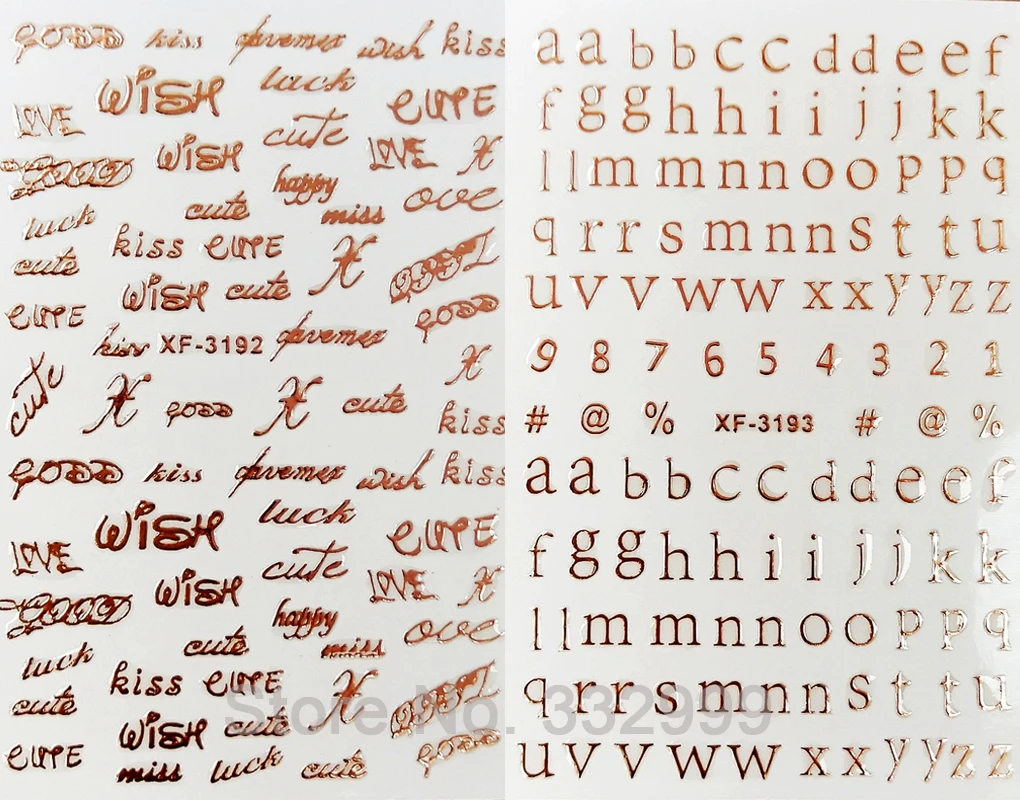 GOOD kiss wish kiss
WISH luck
LOVE CUTE
cute
WISH LOVE X
GOOD happy
cute miss ove
luck
kiss CUTE X
cute
WISH cute
CUTE GOOD
kiss XF-3192
X
cute X GOOD X cute
kiss
GOOD kiss wish kiss
WISH luck
LOVE CUTE
cute
WISH LOVE X
GOOD happy
cute miss ove
luck
kiss CUTE X
cute
WISH cute
CUTE GOOD
miss luck cute
a a b b c c d d e e f
f g g h h i i j j k k
l l m m n n o o p p q
q r r s m n n s t t u
u v v w w x x y y z z
9 8 7 6 5 4 3 2 1
# @ % XF-3193 # @ %
a a b b c c d d e e f
f g g h h i i j j k k
l l m m n n o o p p q
q r r s m n n s t t u
u v v w w x x y y z z
Store No. 332999